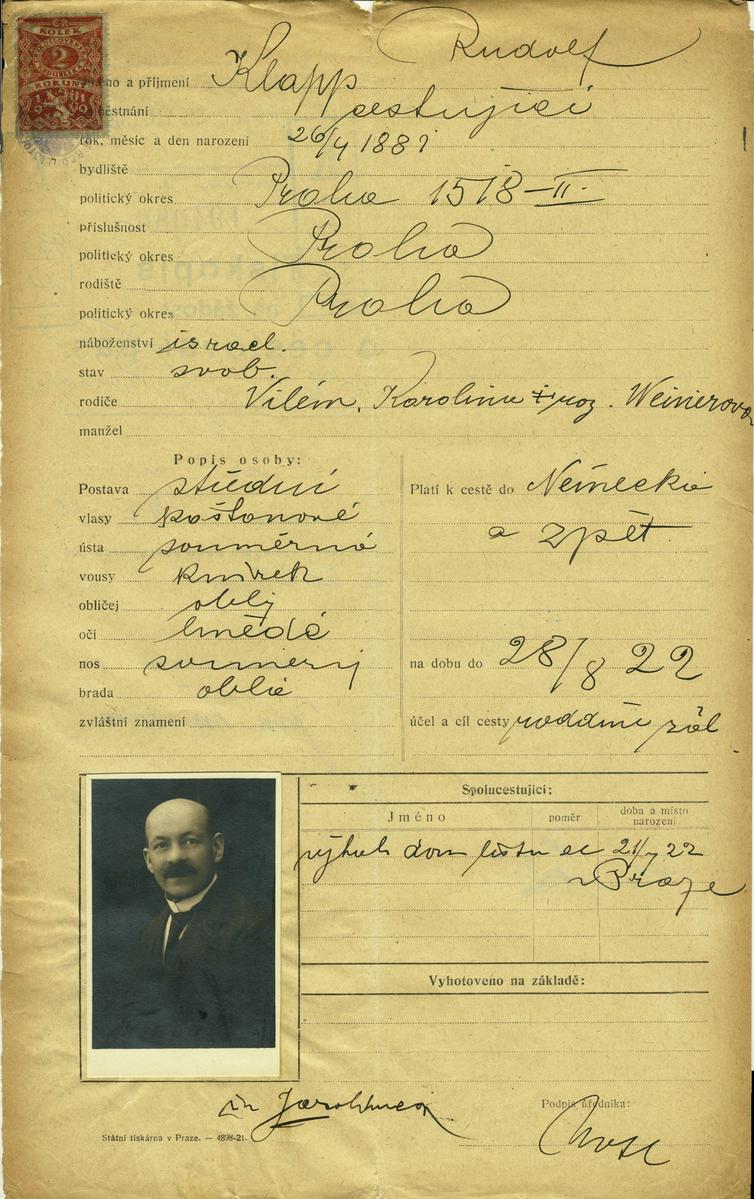 KOLEK
2
KORUNY
Rudolf
Jméno a příjmení Klapp
zaměstnání cestující
rok, měsíc a den narození 26/4 188
bydliště
politický okres Praha 1518-II.
příslušnost
politický okres Praha
rodiště
politický okres Praha
náboženství israel.
stav svob.
rodiče Vilém, Karolina roz. Weinerova
manžel
Popis osoby:
Postava střední
vlasy kaštanové
ústa souměrná
vousy knírek
obličej oblý
oči hnědé
nos souměrný
brada oblá
zvláštní znamení
Platí k cestě do Německa
a zpět
na dobu do 28/8 22
účel a cíl cesty rodinné zál
Spolucestující:
Jméno poměr doba a místo narození
výkaz dom listu 21/7 22
v Praze
Vyhotoveno na základě:
Podpis úředníka:
Státní tiskárna v Praze. — 4898-21.